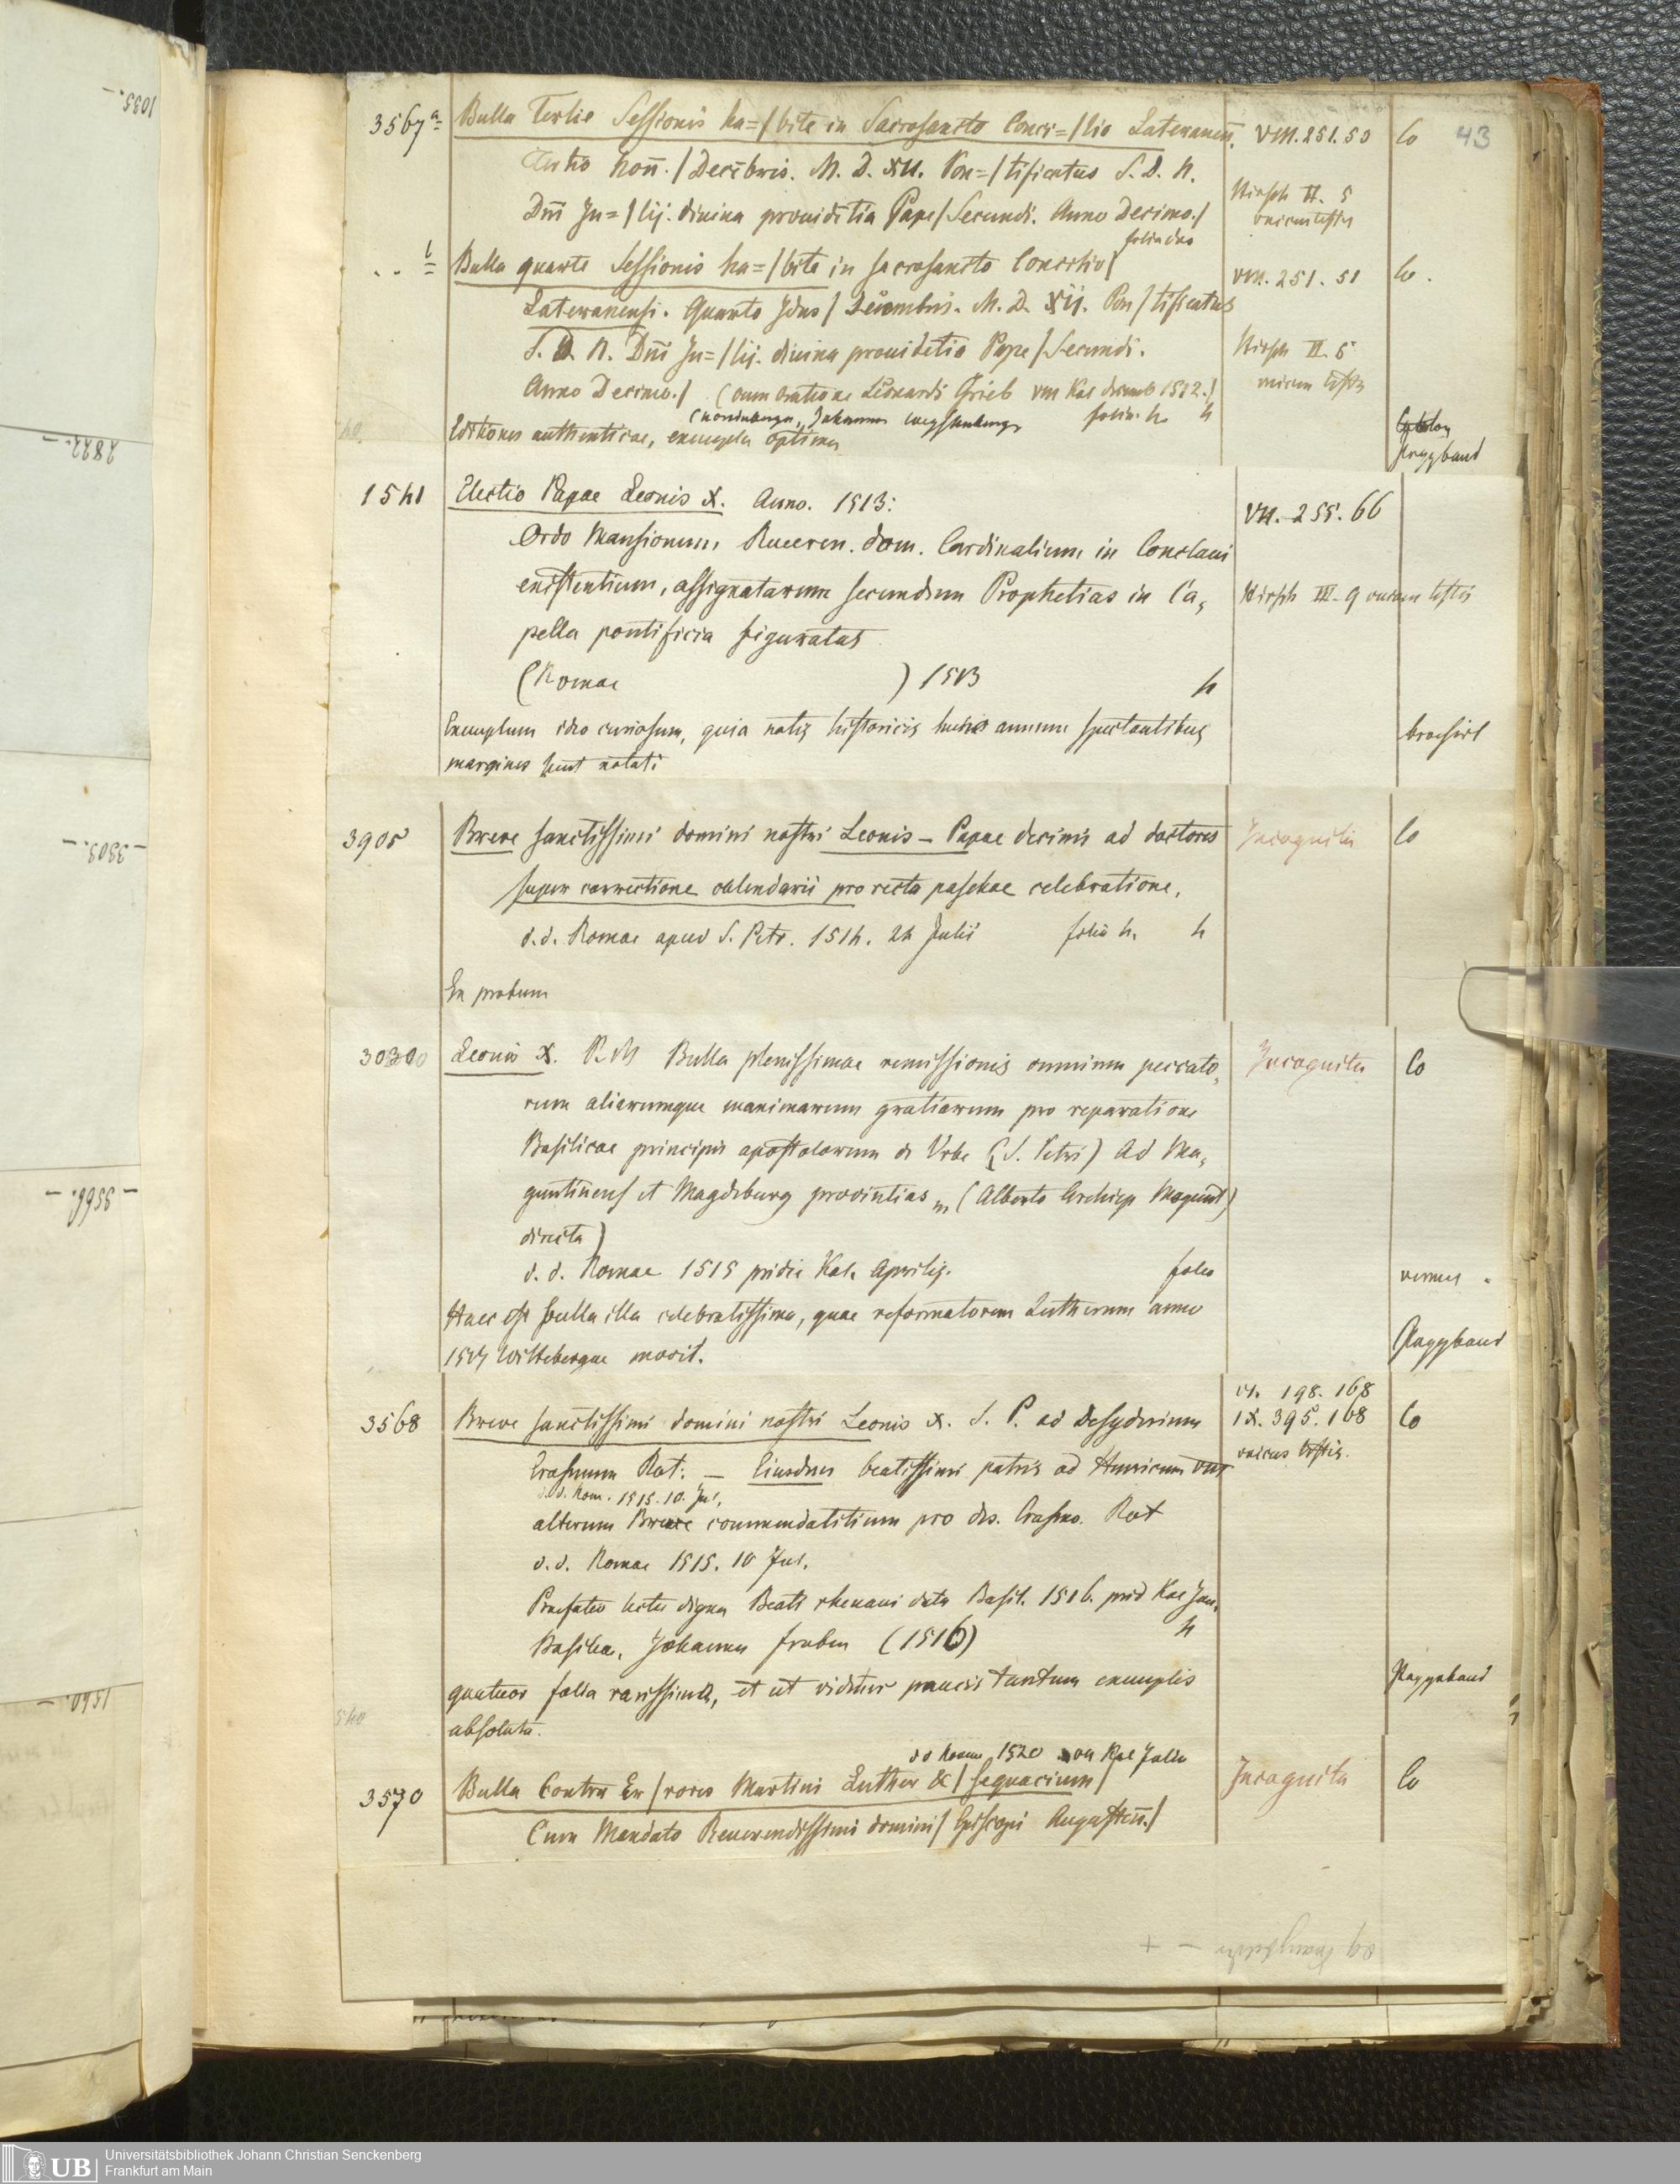 1035.—
2822.—
—3303.—
—3566.—
1560.—
43
3567 a Bulla Tertie Sessionis ha=/bite in Sacrosancto Conci=/lio Lateranen̄. VII. 251. 50 Co
Tertio Non̄./Decēbris. M. D. XII. Pon=/tificatus S. D. N.
Hirsch II. 5
Dn̄i Ju=/lij. diuina prouidētia Pape/Secundi. Anno Decimo./
unicus testis
folia duo
.. b Bulla quarte Sessionis ha=/bite in sacrosancto Concilio/ VII. 251. 51 Co.
Lateranensi. Quarto Jdus/Decembris. M. D. XII. Pon/tificatus
S. D. N. Dn̄i Ju=/lij. diuina prouidetia Pape/Secundi. Hirsch II. 5
Anno Decimo./ (cum oratione Leonardi Grieb VIII Kal decemb 1512.)
unicus testis
(Norimbergae, Johannes Weyssenburger folia 4. 4
Editiones authenticae, exempla optima
Pappband
1541 Electio Papae Leonis X. Anno. 1513: VII. 255. 66
Ordo Mansionum Reueren. dom. Cardinalium in Conclaui
existentium, assignatarum secundum Prophetias in Ca, Hirsch III. 9 unicus testis
pella pontificia figuratas
(Romae ) 1513 4
Exemplum ideo curiosum, quia notis historicis hunc annum spectantibus broshirt
margines sunt notati
3905 Breve sanctissimi domini nostri Leonis – Papae decimi ad doctores Incognita Co
super correctione calendarii pro recta paschae celebratione,
d. d. Romae apud S. Petr. 1514. 24 Julii folia 4. 4
Ex probum
30300 Leonis X. P. M Bulla plenissimae remissionis omnium peccato, Incognita Co
rum aliarumque maximarum gratiarum pro reparatione
Basilicae principis apostolorum de Urbe (S. Petri) Ad Ma,
guntinens et Magdeburg provintias (Alberto Archiep Mogunt)
directa)
d. d. Romae 1515 pridie Kal. Aprilis. folio
Haec est bulla illa celebratissima, quae reformatorem Lutherum anno
1517 Wittebergae movit. Pappband
VI. 198. 168
3568 Breve sanctissimi domini nostri Leonis X. S. P. ad Desyderium IX. 395. 168 Co
Erasmum Rot. — Eiusdem beatissimi patris ad Henricum VIII unicus testis.
d. d. Rom. 1515. 10. Jul,
alterum Breve commendatitium pro des. Erasmo. Rot
d. d. Romae 1515. 10 Jul.
Praefatio lectu digna Beati rhenani data Basil. 1516. prid Kal Jan.
Basileae, Johannes froben (1516) 4
quatuor folia rarissima, et ut videtur paucis tantum exemplis Pappband
absoluta.
dd Romae 1520 Kal Julii
3570 Bulla Contra Er/rores Martini Luther &/sequacium/ Incognita Co
Cum Mandato Reuerendissimi domini/Episcopi Augusten̄./
Universitätsbibliothek Johann Christian Senckenberg
Frankfurt am Main
UB